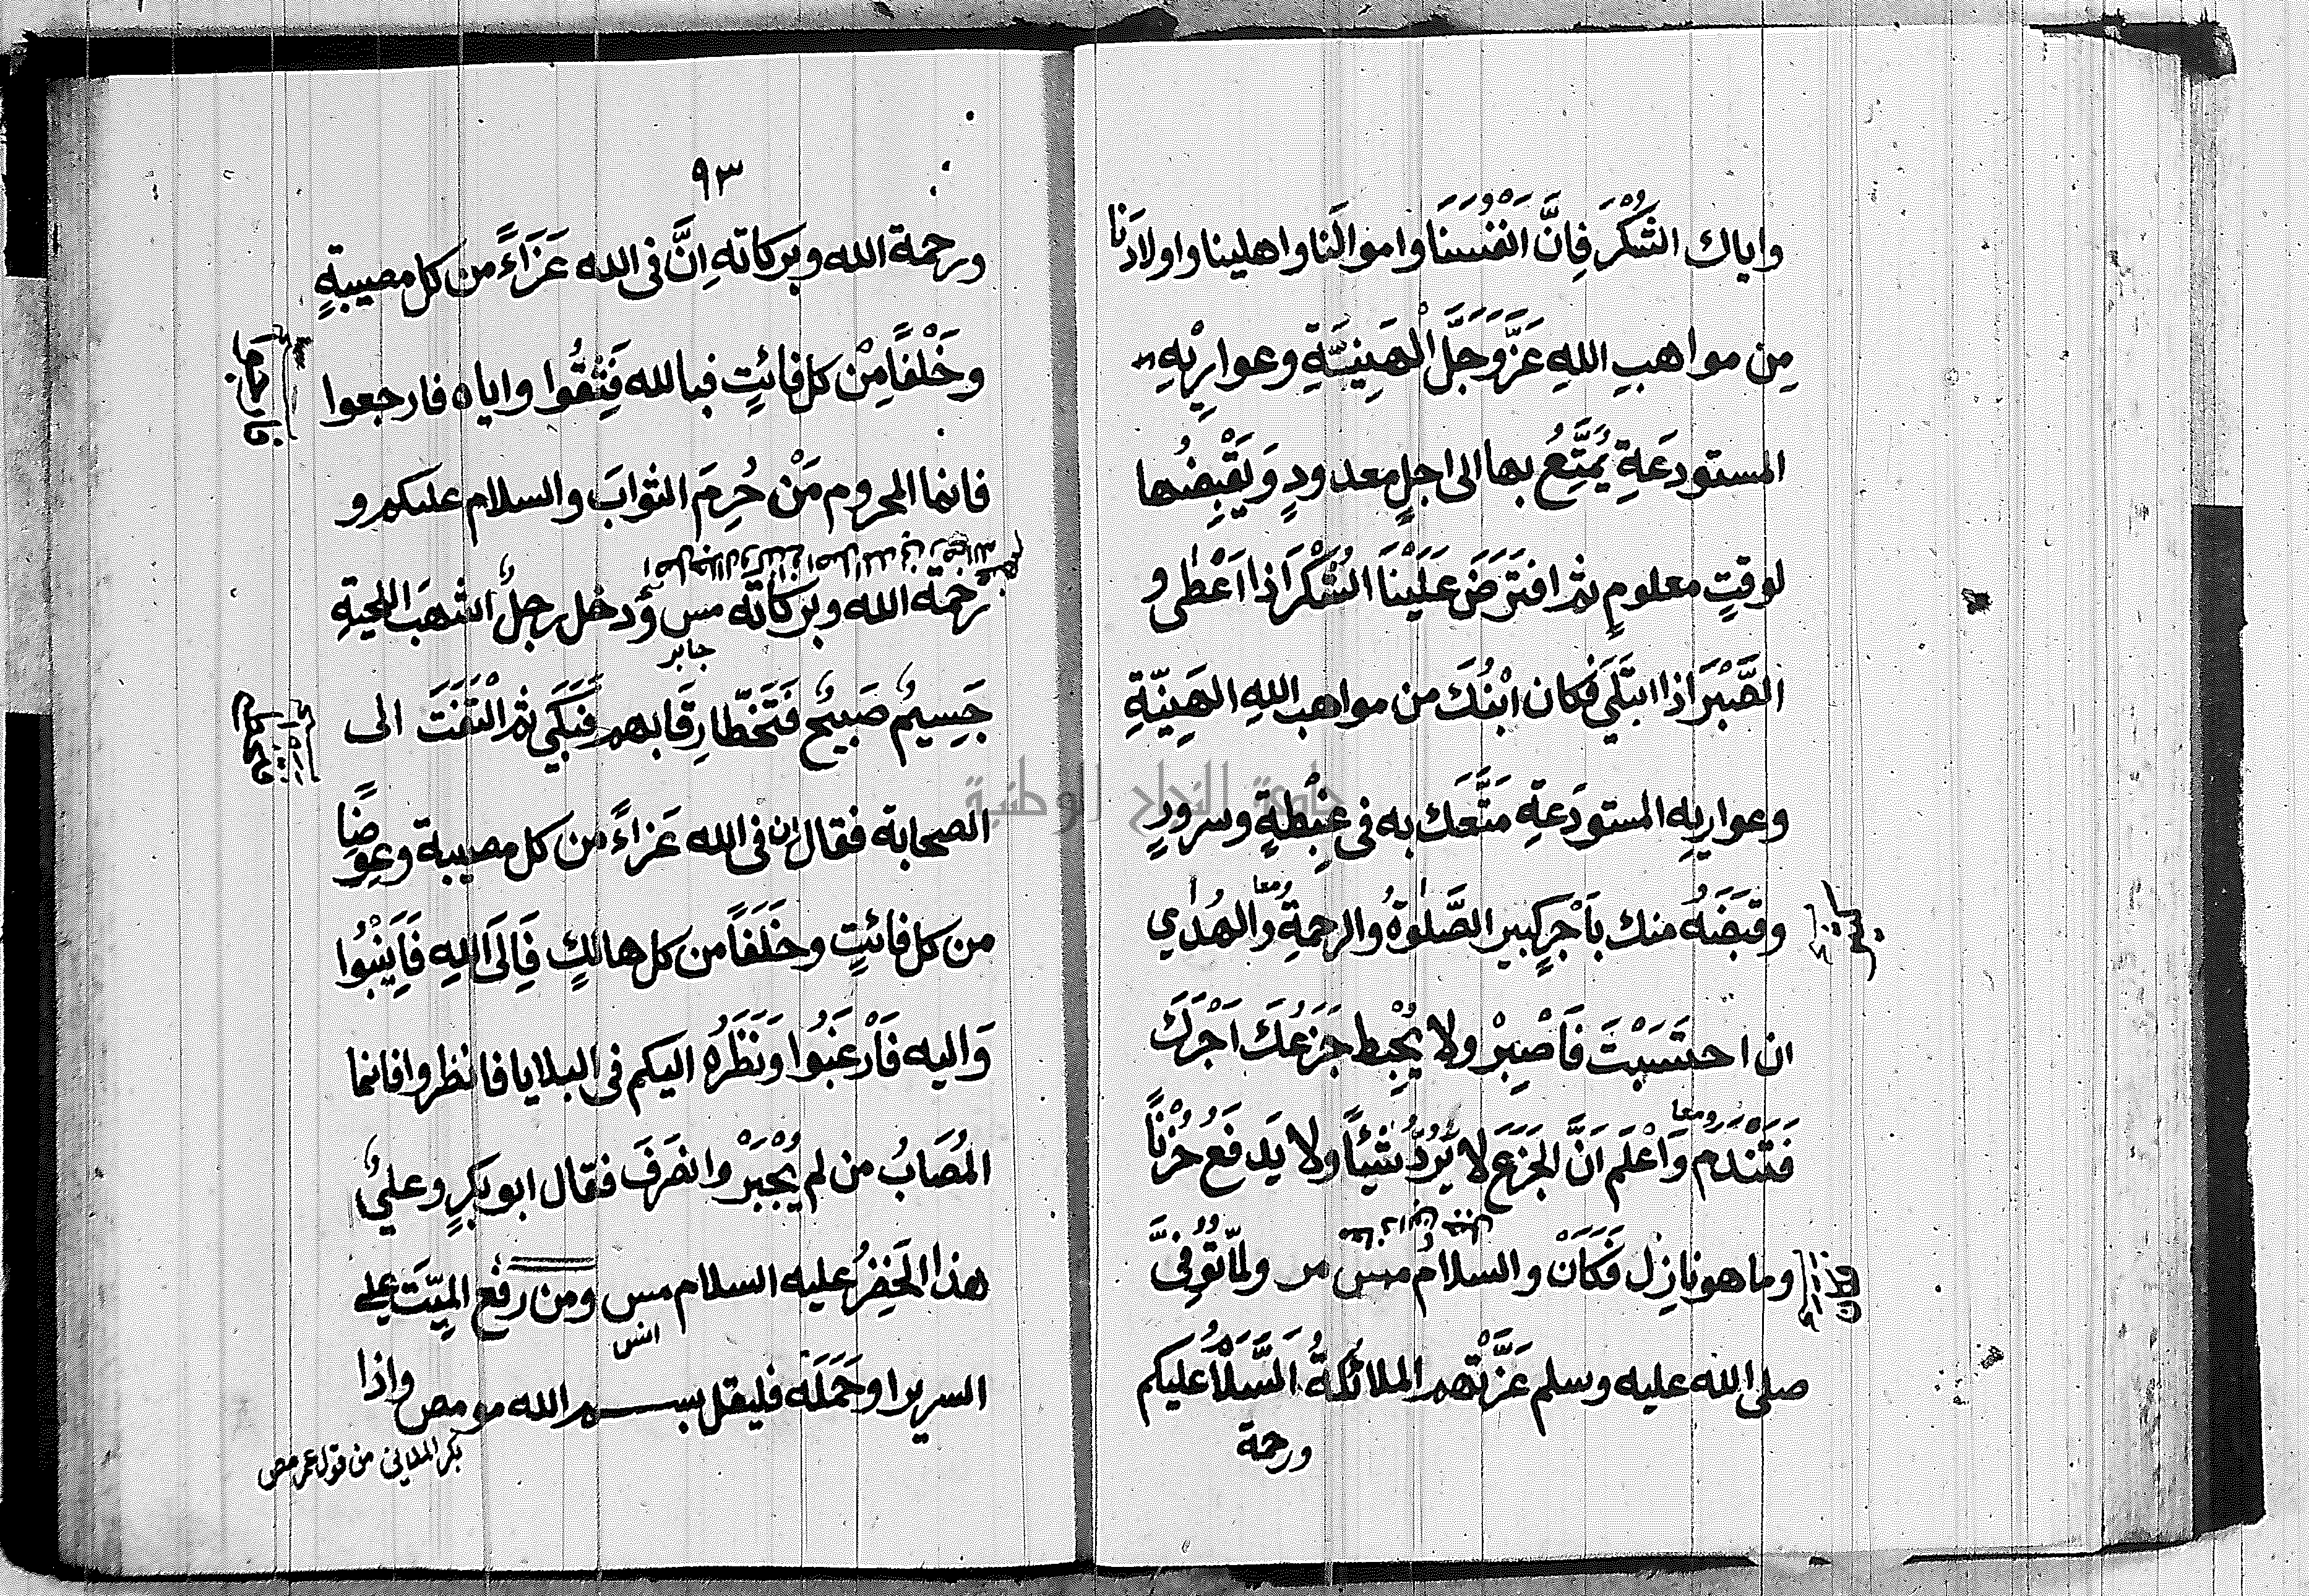 واياك الشُّكْرَ فَاِنَّ اَنْفُسَنَا واموالَنا واهلينا واولادَنا
مِن مواهبِ اللهِ عَزَّ وَجَلَّ الْهَنِيَّةِ وعوارِيْهِ
المستودعَةِ يُمَتِّعُ بها الى اجلٍ معدودٍ وَيَقْبِضُها
لوقتٍ معلومٍ ثم افتَرَضَ عَلَيْنَا الشُّكْرَ اذا اَعْطى و
الصَّبْرَ اذا ابتَلَى فَكان ابْنُكَ من مواهب اللهِ الهَنِيّةِ
وعوارِيهِ المستودَعةِ مَتَّعَك به فى غِبْطةٍ وسرورٍ
وقبَضَهُ منك بِاَجْرٍ كبيرٍ الصَّلٰوةُ والرحمةُ والهُدٰي
معا
ان احتَسَبْتَ فَاصْبِرْ ولا يُحْبِط جَزَعُكَ اَجْرَكَ
فَتَنْدَمَ وَاعْلَم اَنَّ الجَزَعَ لا يَرُدُّ شَيْئًا ولا يَدفَعُ حُزْنًا
ومعا
وما هو نازِل فَكَاَنْ والسلامُ مس مر ولمّا تُوُفِّىَ
صلى الله عليه وسلم عَزَّتْهم الملائكةُ اَلسَّلَامُ عليكم
ورحمة
٩٣
ورحمة الله وبركاته اِنَّ فى الله عَزَاءً من كل مصيبةٍ
وخَلْفًا مِنْ كل فائتٍ فبالله فَثِقُوا واياه فارجعوا
فارجوا
فانما المحروم مَنْ حُرِمَ الثوابَ والسلام عليكم و
رحمة الله وبركاته مس ودخل رجلٌ اشهَبُ اللحيةِ
جابر
جَسِيمٌ صَبِيحٌ فَتَخَطّا رِقَابهم فَبَكَي ثم الْتَفَتَ الى
الصحابة فقال اِن فى الله عَزاءً من كل مصيبة وعِوَضًا
من كل فائتٍ وخَلَفًا من كل هالكٍ فَاِلَى اللهِ فَاَنِيْبُوا
وَاليه فَارْغَبُوا وَنَظَرُه اليكم فى البلايا فانظروا فانما
المُصَابُ من لم يُجْبَرْ وانصَرَفَ فقال ابو بكرٍ وعليٌّ
هذا الخَضِرُ عليه السلام مس ومن رَفَعَ الميّتَ على
السرير او حَمَلَه فليقل بسم الله مو مص واذا
بكر المزني من قول عمر مص